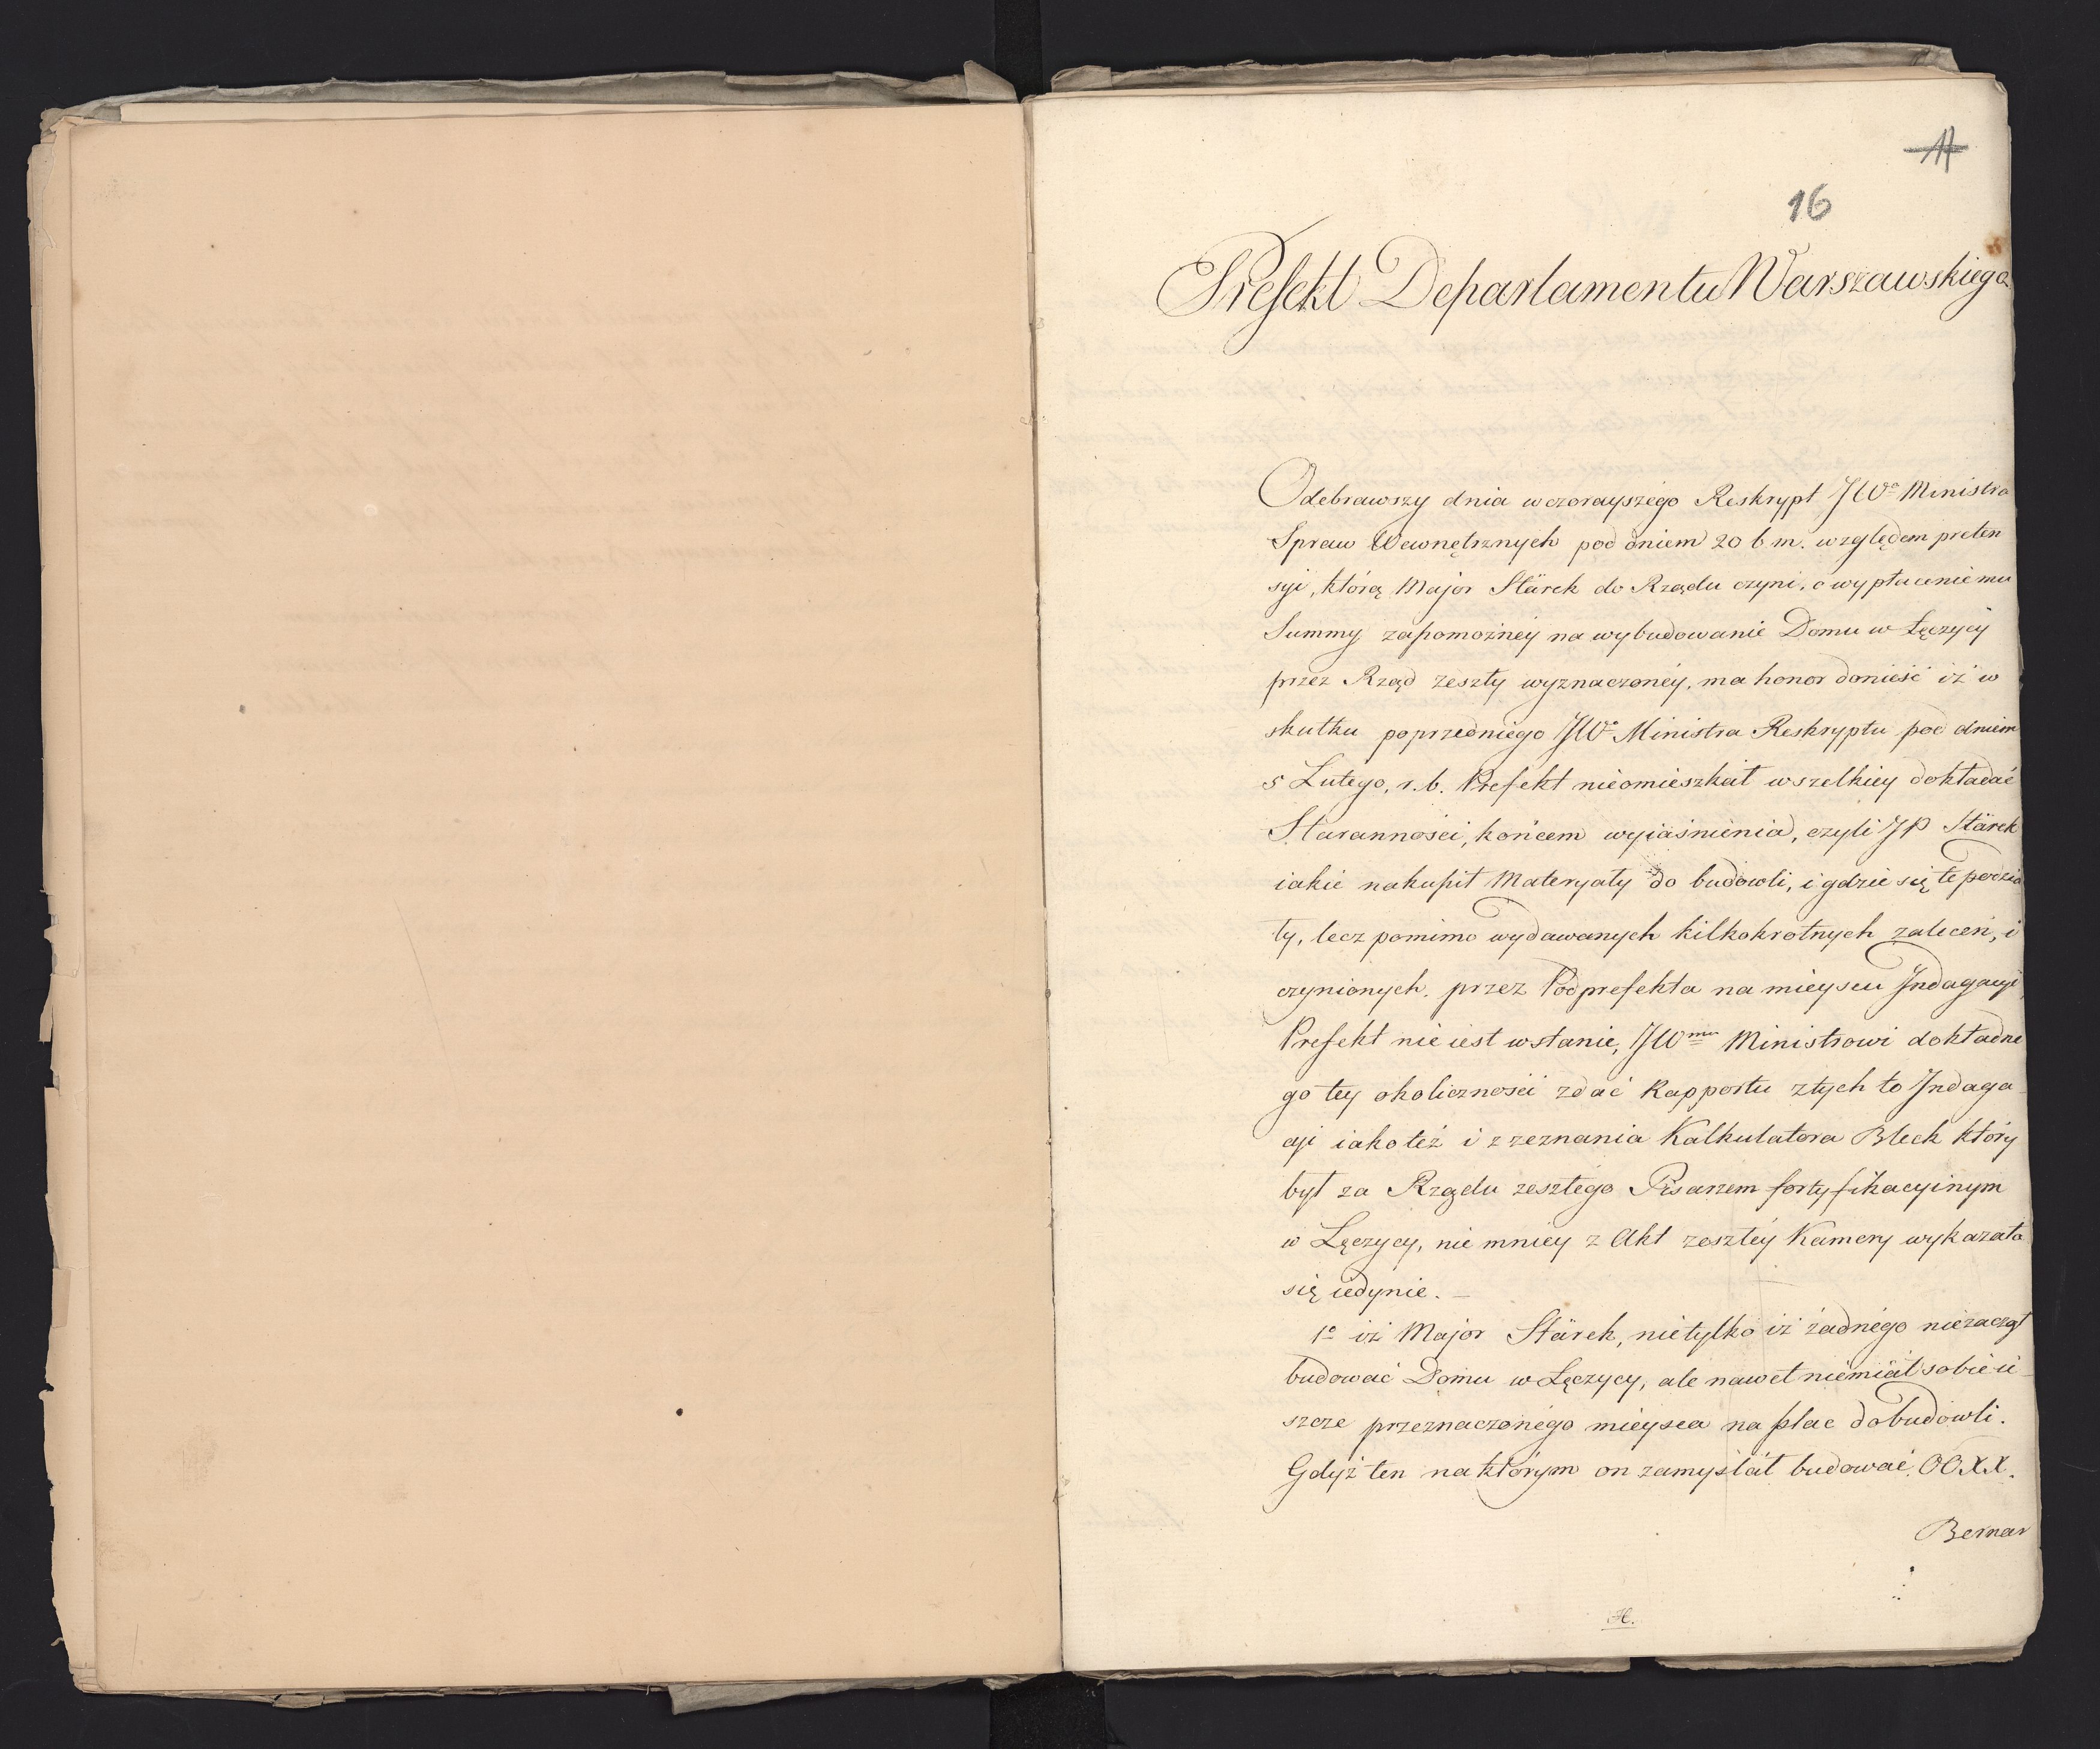 11
16
Prefekt Departamentu Warszawskiego
Odebrawszy dnia wczorayszégo Reskrypt JWo Ministra
Spraw Wewnętrznych pod dniem 20 b m. względem preten
syi, którą Major Stärck do Rządu czyni, o wypłacenie mu
Summy zapomożnéy na wybudowanie Domu w Łęczycy
przez Rząd zeszły wyznaczonéy, ma honor donieść iż w
skutku poprzedniego JWo Ministra Reskryptu pod dniem
5 Lutego, r. b. Prefekt nieomieszkał wszelkiey dokładać
Staranności, końcem wyiaśnienia, czyli JP Stärck
iakie nakupił Materyały do budowli, i gdzie się te podzia
ły, lecz pomimo wydawanych kilkokrotnych zaleceń, i
czynionych. przez Podprefekta na mieyscu Indagacyi,
Prefekt nie iest wstanie, JWmu Ministrowi dokładne
go tey okoliczności zdać Rapportu ztych to Indaga
cyi iakoteż i z zeznania Kalkulatora Bleck który
był za Rządu zeszłego Pisarzem fortyfikacyinym
w Łęczycy, nie mniey z Akt zeszłéy Kamery wykazało
się iedynie. —
1o iż Major Stärck, nietylko iż żadnégo niezaczął
budować Domu w Łęczycy, ale nawet niémiał sobie ie
szcze przeznaczonégo mieysca na plac dobudowli.
Gdyż ten naktórym on zamyślał budować, OO XX.
Bernar